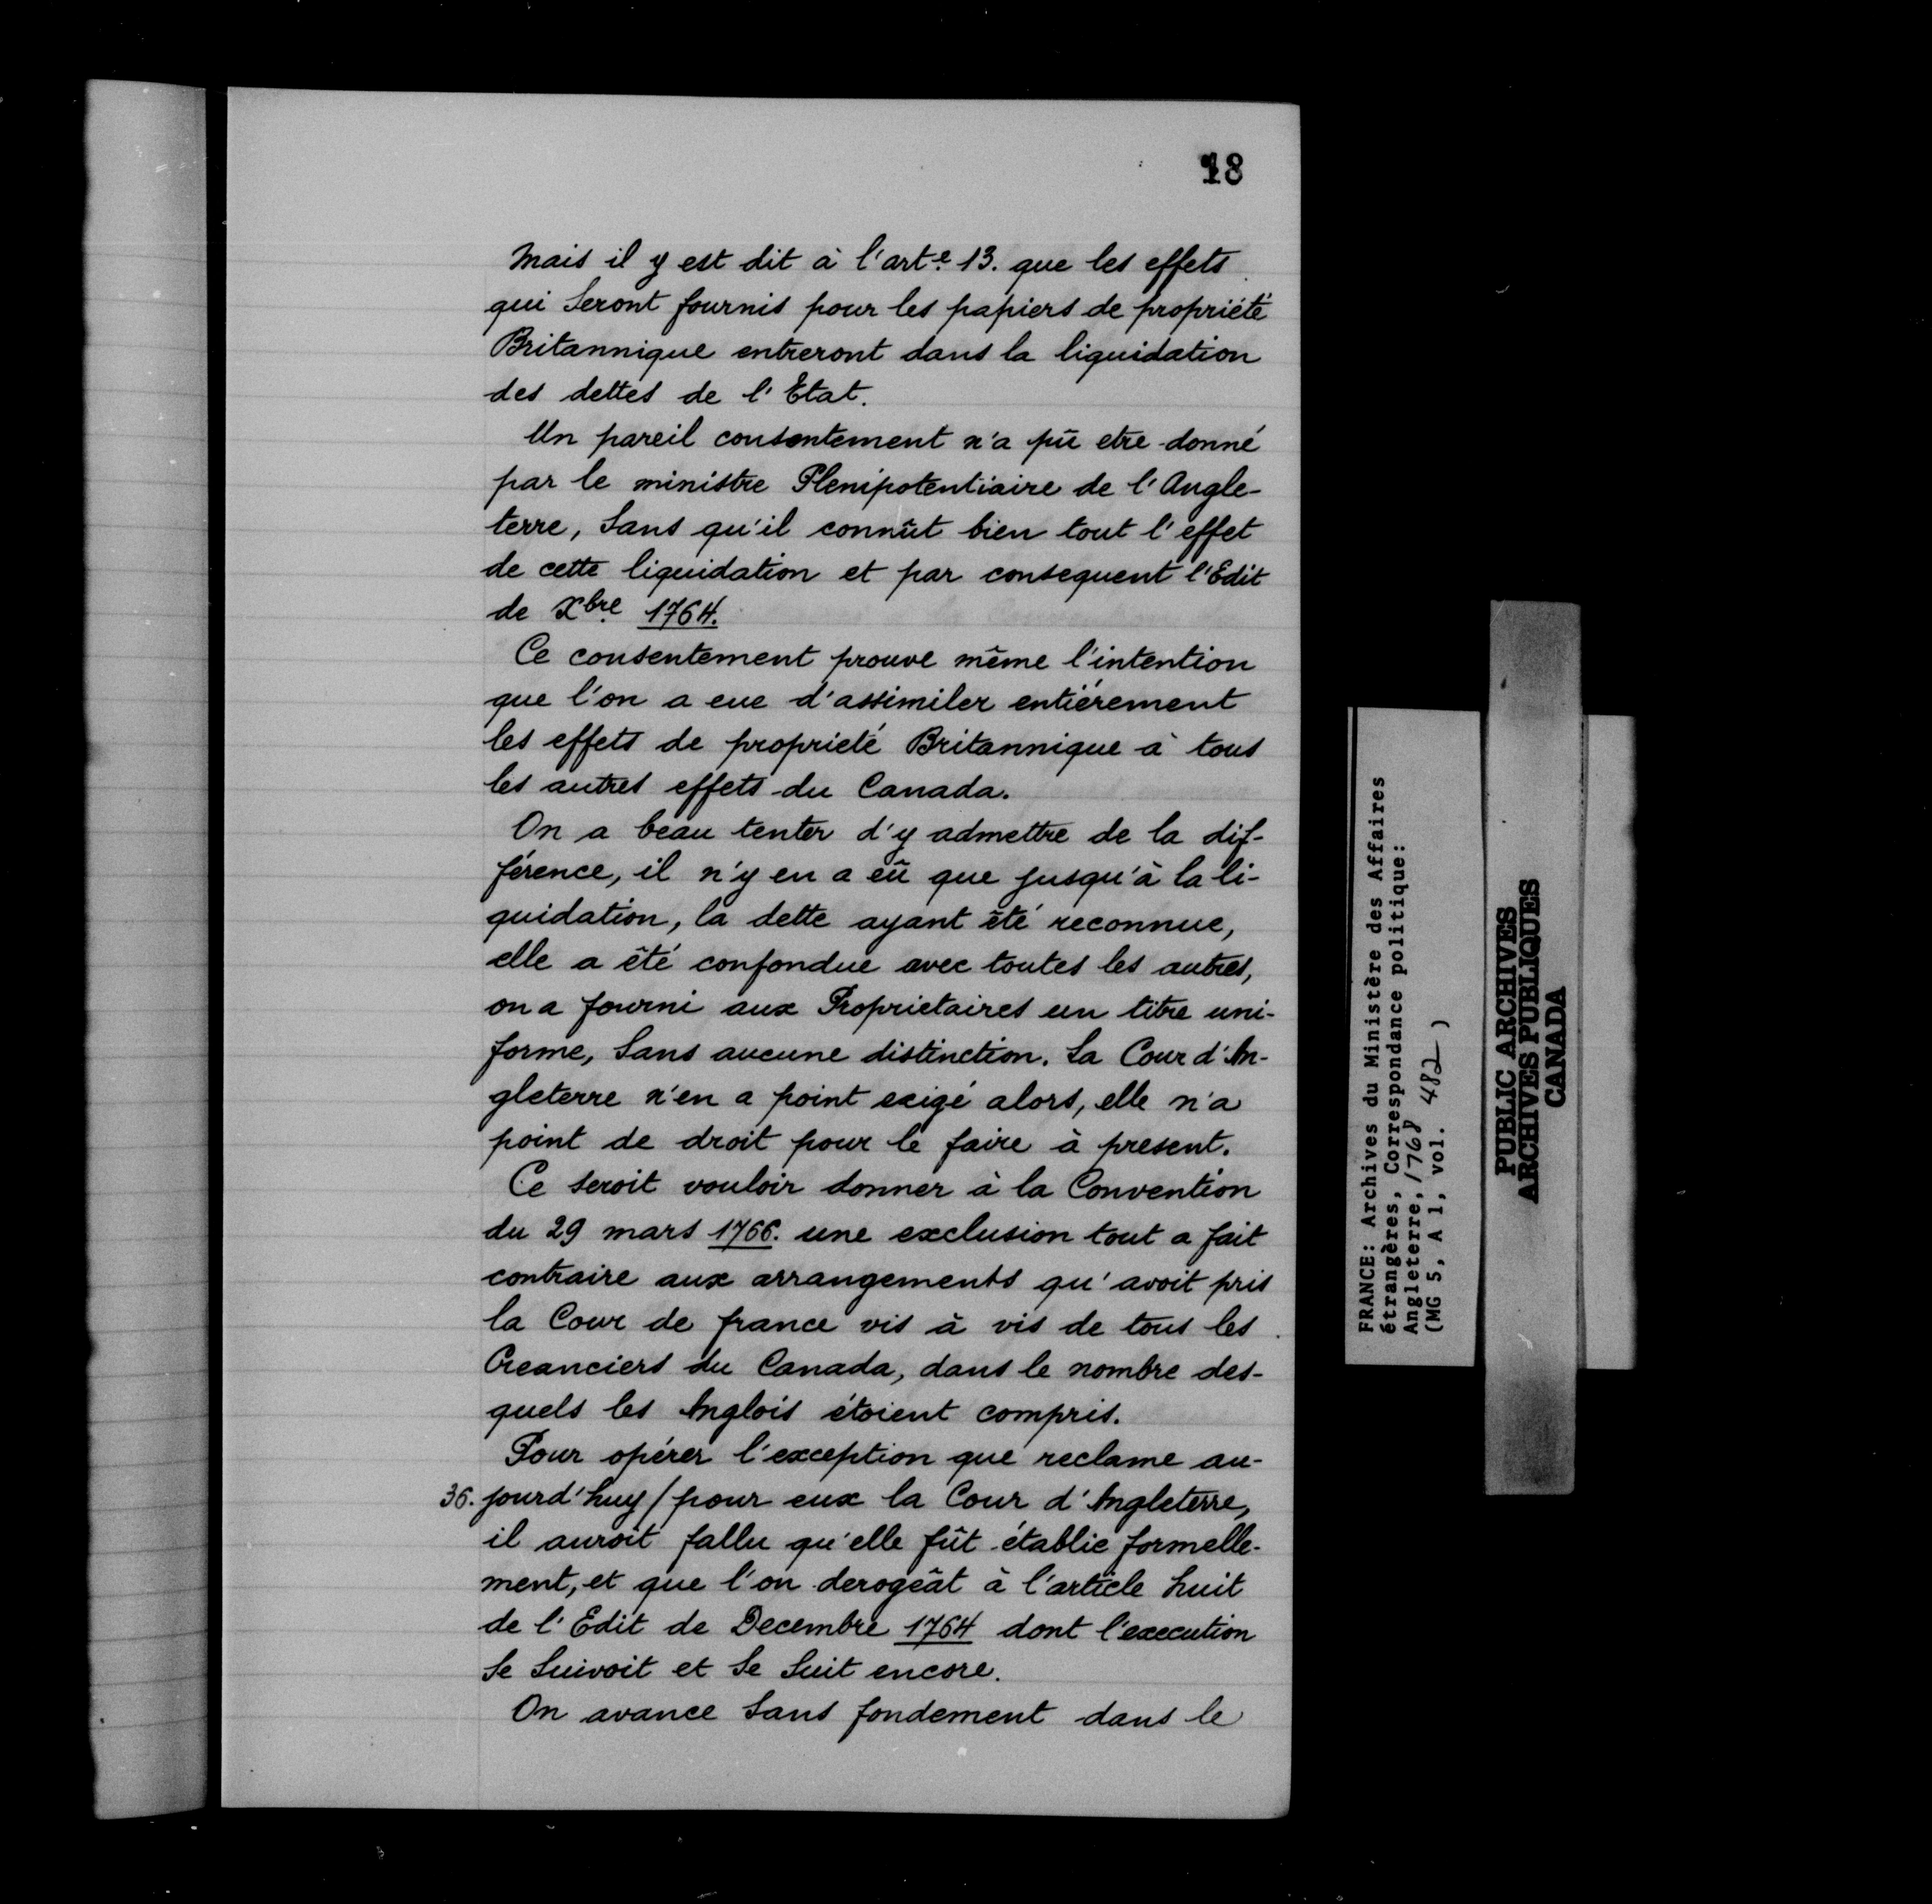 18
Mais il y est dit à l'art.e 13. que les effets
qui seront fournis pour les papiers de propriété
Britannique entreront dans la liquidation
des dettes de l'Etat.
Un pareil consentement n'a pû etre donné
par le ministre Plenipotentiaire de l'Angle-
terre, sans qu'il connût bien tout l'effet
de cette liquidation et par consequent l'Edit
de Xbre 1764.
Ce consentement prouve même l'intention
que l'on a eue d'assimiler entiérement
les effets de proprieté Britannique à tous
les autres effets du Canada.
On a beau tenter d'y admettre de la dif-
férence, il n'y en a eû que jusqu'à la li-
quidation, la dette ayant êté reconnue,
elle a êté confondue avec toutes les autres,
on a fourni aux Proprietaires un titre uni-
forme, sans aucune distinction. La Cour d'An-
gleterre n'en a point exigé alors, elle n'a
point de droit pour le faire à present.
Ce seroit vouloir donner à la Convention
du 29 mars 1766. une exclusion tout a fait
contraire aux arrangements qu'avoit pris
la Cour de france vis à vis de tous les
Creanciers du Canada, dans le nombre des-
quels les Anglois étoient compris.
Pour opérer l'exception que reclame au-
36. jourd'huy / pour eux la Cour d'Angleterre,
il auroit fallu qu'elle fût établie formelle-
ment, et que l'on derogeât à l'article huit
de l'Edit de Decembre 1764 dont l'execution
se suivoit et se suit encore.
On avance sans fondement dans le
FRANCE: Archives du Ministère des Affaires
étrangères, Correspondance politique:
Angleterre, 1768
(MG 5, A 1, vol. 482)
PUBLIC ARCHIVES
ARCHIVES PUBLIQUES
CANADA